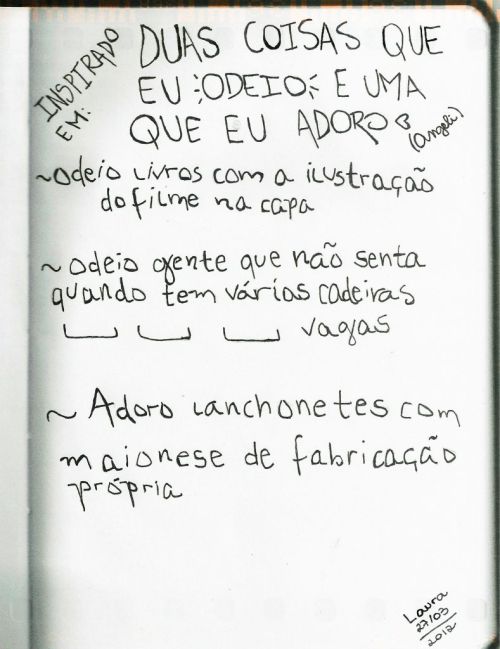 INSPIRADO
EM:
DUAS COISAS QUE
EU ODEIO E UMA
QUE EU ADORO
(Angeli)
~odeio livros com a ilustração
do filme na capa
~odeio gente que não senta
quando tem vários cadeiras
vagas
~ Adoro lanchonetes com
maionese de fabricação
própria
Laura
27/03
2012